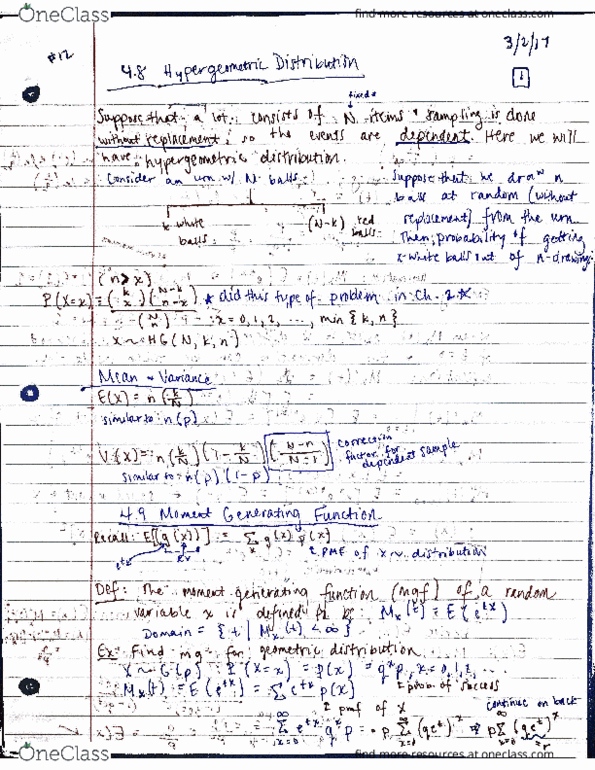 OneClass
find more resources at oneclass.com
#12
3/2/17
1
4.8 Hypergeometric Distribution
fixed #
Suppose that a lot consists of N items & sampling is done
without replacement, so the events are dependent. Here we will
have hypergeometric distribution.
Consider an urn w/ N balls
k white balls
(N-k) red balls
Suppose that we draw n
balls at random (without
replacement) from the urn.
Then, probability of getting
x white balls out of n-drawing
(n ≥ x)
P(X=x) = (k x)(N-k n-x) / (N n) * did this type of problem in Ch. 2 *
x = 0, 1, 2, ..., min {k, n}
X ~ HG (N, k, n)
Mean & Variance
E(x) = n (k/N)
similar to: n(p)
V(X) = n (k/N) (1 - k/N) (N-n / N-1) correction factor for dependent sample
similar to: n(p) (1-p)
4.9 Moment Generating Function
Recall: E[g(x)] = Σ g(x) p(x)
x
e^tx
RV
pmf of x ~ distribution
Def: The moment generating function (mgf) of a random
variable x is defined to be Mx(t) = E(e^tx)
Domain = { t | Mx(t) < ∞ }
Ex: Find mgf for geometric distribution
X ~ G(p) : P(X=x) = p(x) = q^x p, x = 0, 1, 2, ...
prob of success
Mx(t) = E(e^tx) = Σ e^tx p(x)
pmf of x
continue on back
= Σ x=0 ∞ e^tx q^x p = p Σ x=0 ∞ (qe^t)^x ⇒ p Σ x=0 ∞ (qe^t)^x
=r
OneClass
find more resources at oneclass.com